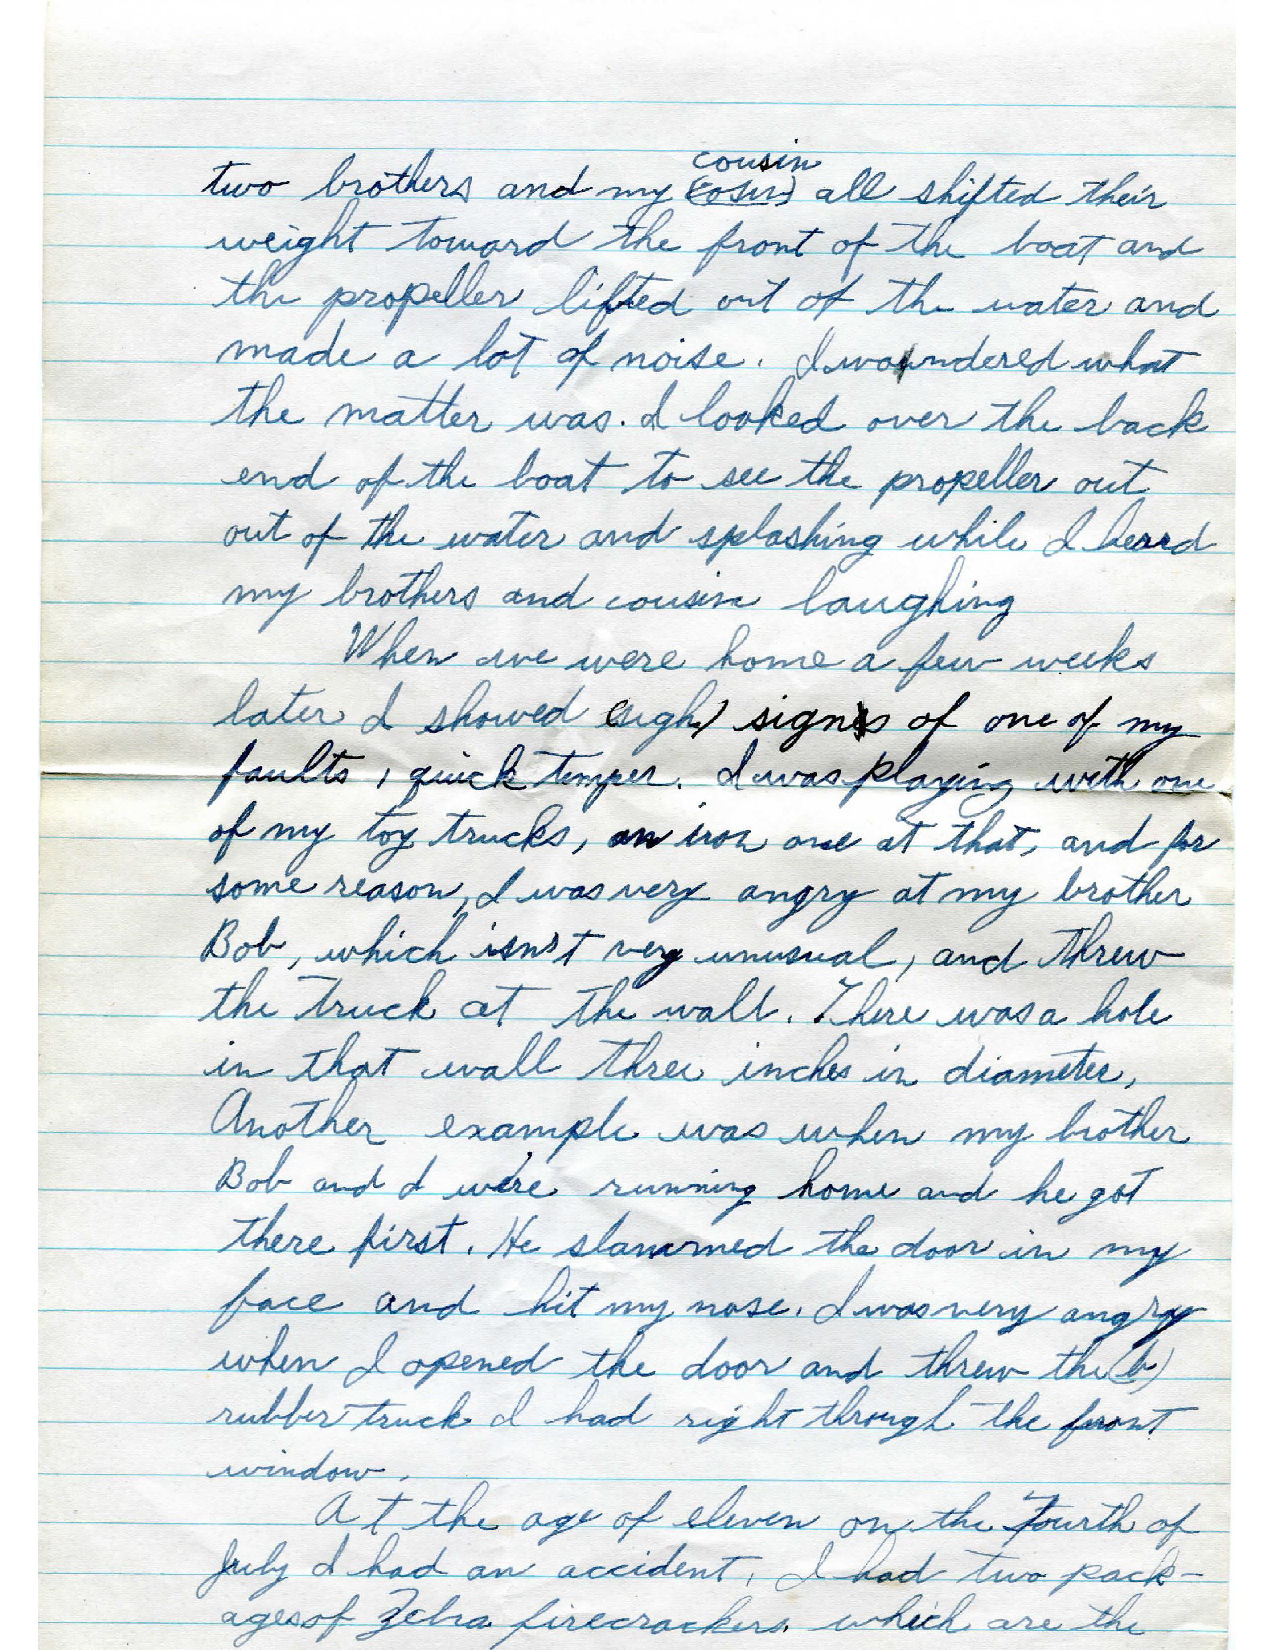 cousin
two brothers and my (cosin) all shifted their
weight toward the front of the boat and
the propeller lifted out of the water and
made a lot of noise. I wondered what
the matter was. I looked over the back
end of the boat to see the propeller out
out of the water and splashing while I heard
my brothers and cousin laughing
When we were home a few weeks
later I showed (sigh) signs of one of my
faults, quick temper. I was playing with one
of my toy trucks, an iron one at that, and for
some reason, I was very angry at my brother
Bob, which isn't very unusual, and threw
the truck at the wall. There was a hole
in that wall three inches in diameter,
Another example was when my brother
Bob and I were running home and he got
there first. He slammed the door in my
face and hit my nose. I was very angry
when I opened the door and threw the (b)
rubber truck I had right through the front
window.
At the age of eleven on the Fourth of
July I had an accident. I had two pack-
ages of Zebra firecrackers which are the